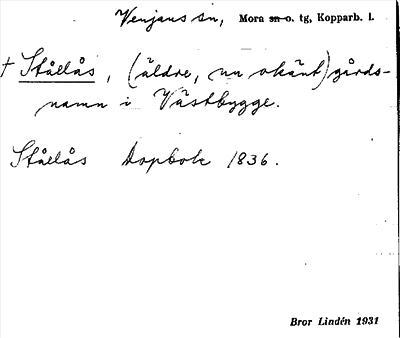 Venjans sn, Mora sn o. tg, Kopparb. l.
† Stållås, (äldre, nu okänt) gårds-
namn i Västbygge.
Stållås Dopbok 1836.
Bror Lindén 1931